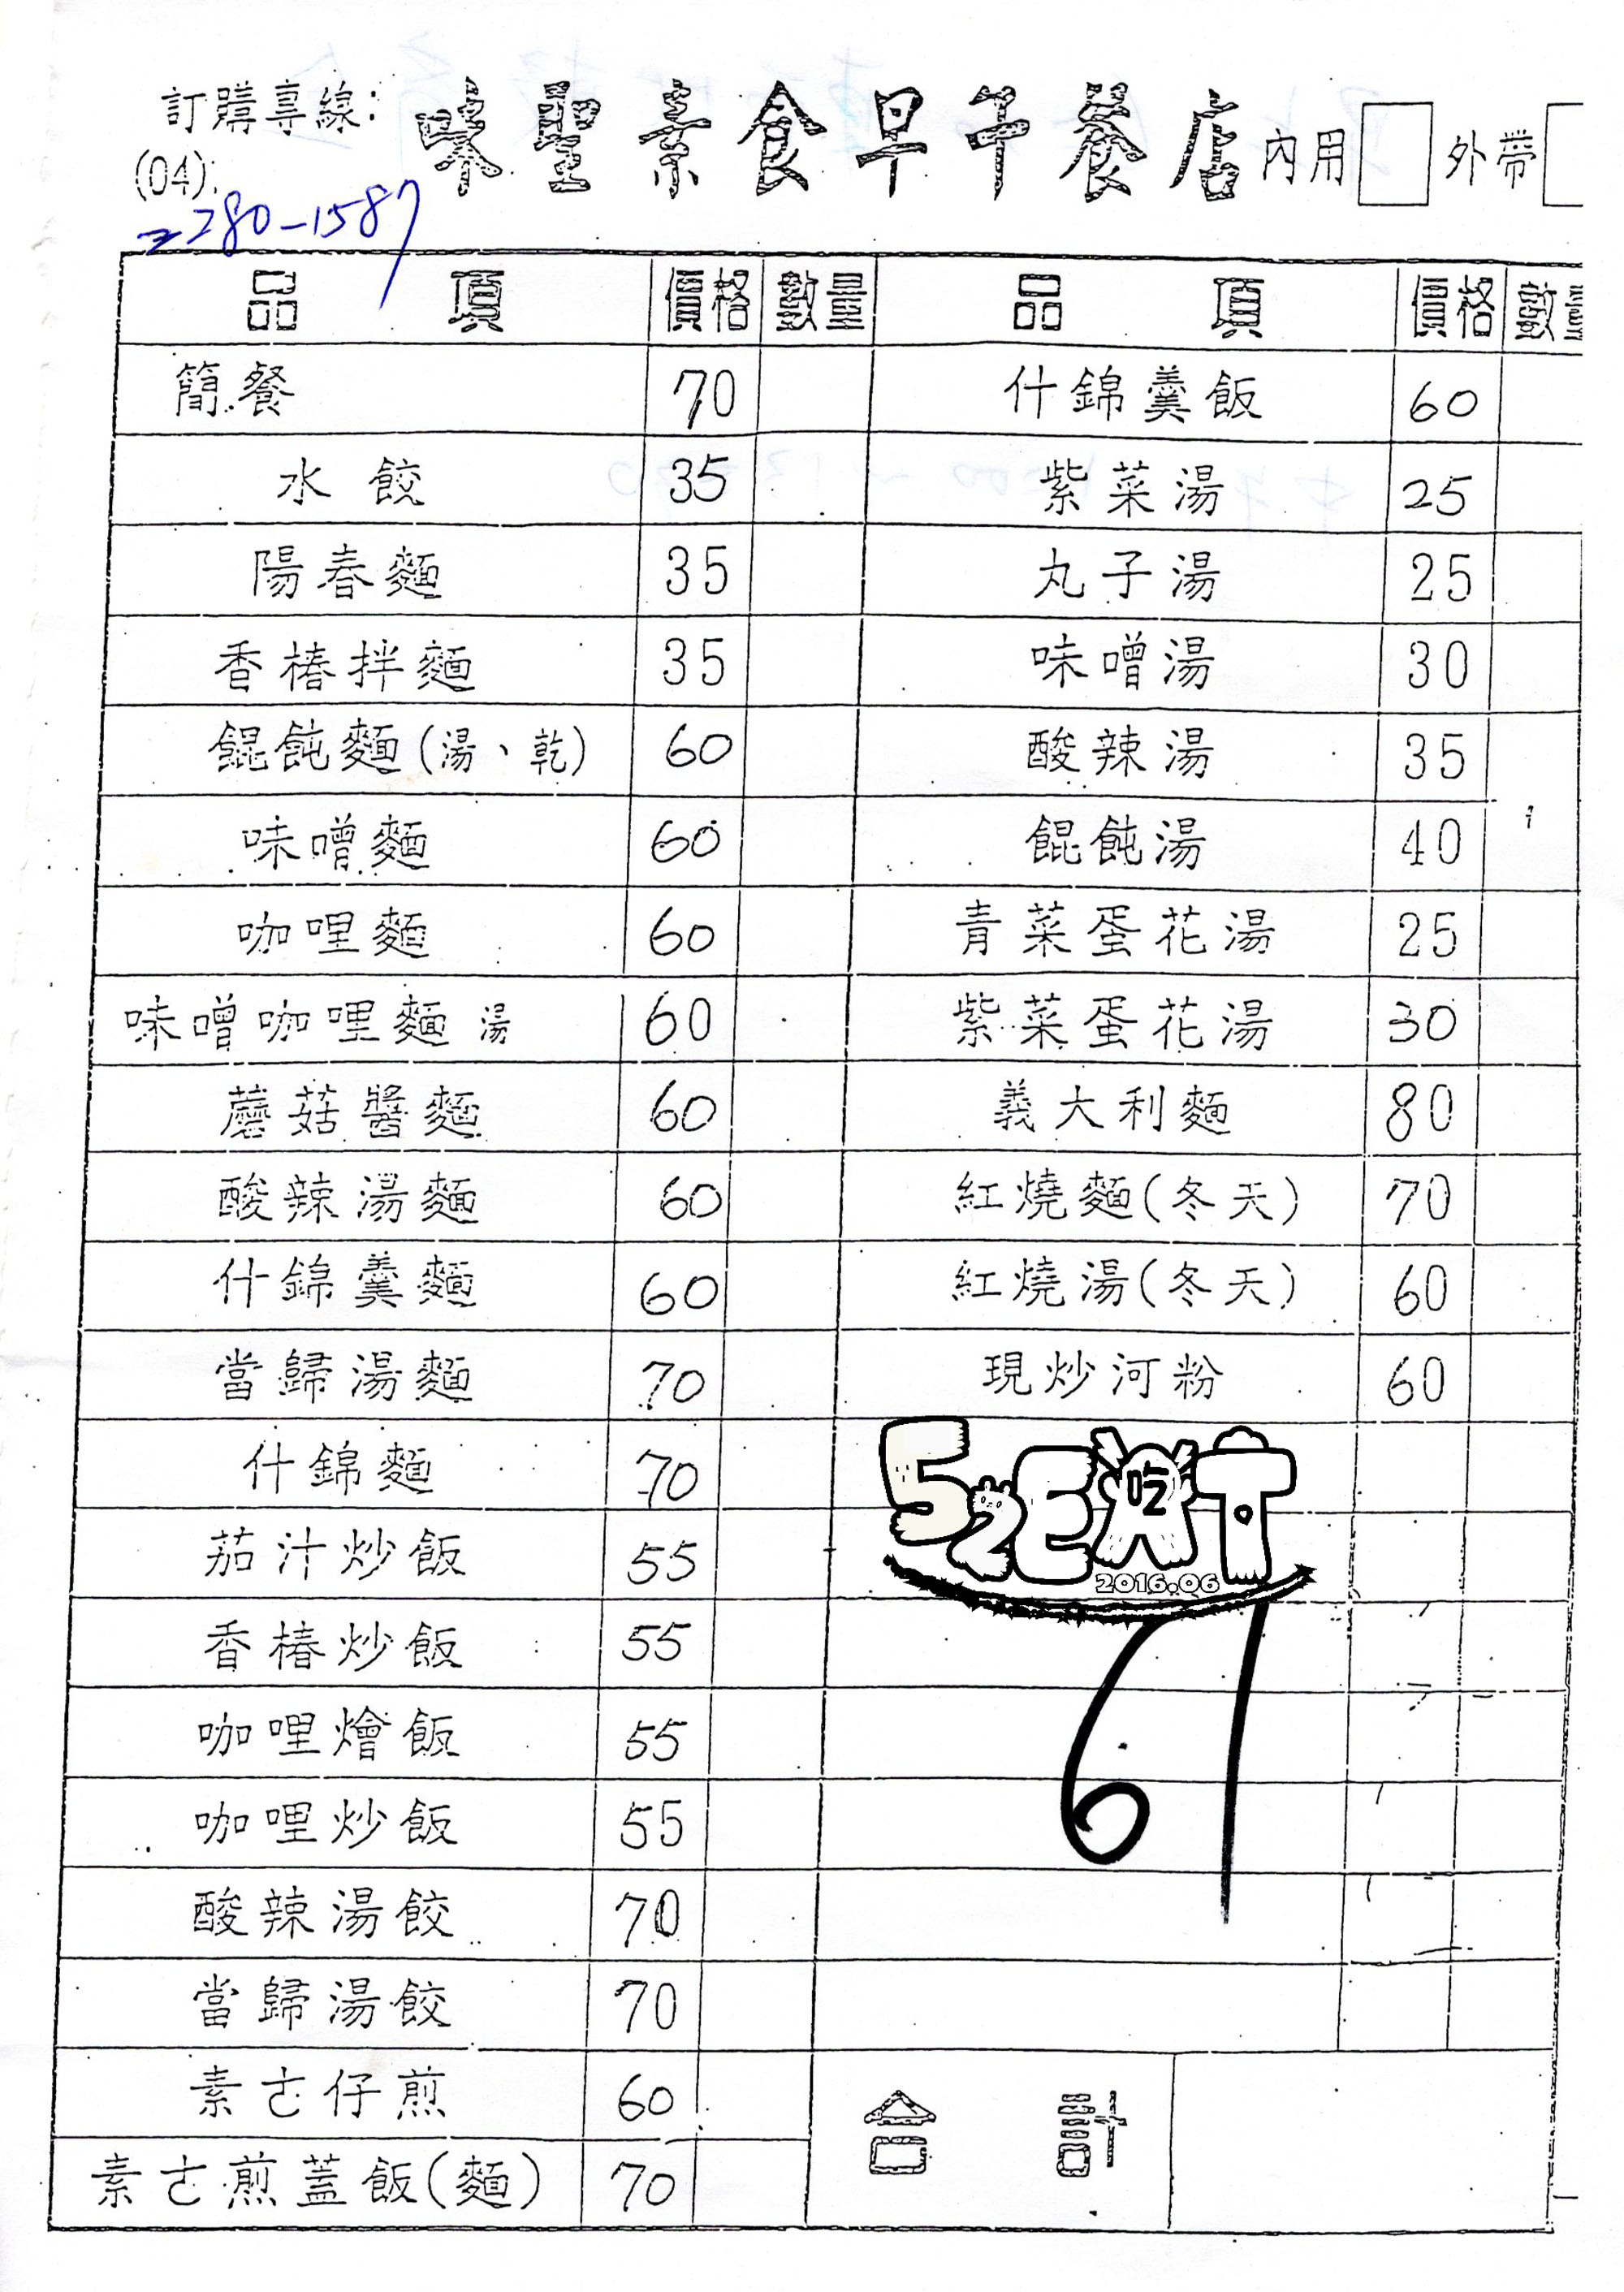 訂購專線：
(04):
2280-1587
味聖素食早午餐店
內用 外帶
品項 價格 數量 品項 價格 數量
簡餐 70 什錦羹飯 60
水餃 35 紫菜湯 25
陽春麵 35 丸子湯 25
香椿拌麵 35 味噌湯 30
餛飩麵(湯、乾) 60 酸辣湯 35
味噌麵 60 餛飩湯 40
咖哩麵 60 青菜蛋花湯 25
味噌咖哩麵 湯 60 紫菜蛋花湯 30
蘑菇醬麵 60 義大利麵 80
酸辣湯麵 60 紅燒麵(冬天) 70
什錦羹麵 60 紅燒湯(冬天) 60
當歸湯麵 70 現炒河粉 60
什錦麵 70
茄汁炒飯 55
香椿炒飯 55
咖哩燴飯 55
咖哩炒飯 55
酸辣湯餃 70
當歸湯餃 70
素ㄜ仔煎 60
素ㄜ煎蓋飯(麵) 70
合計
52EAT
吃
2016.06